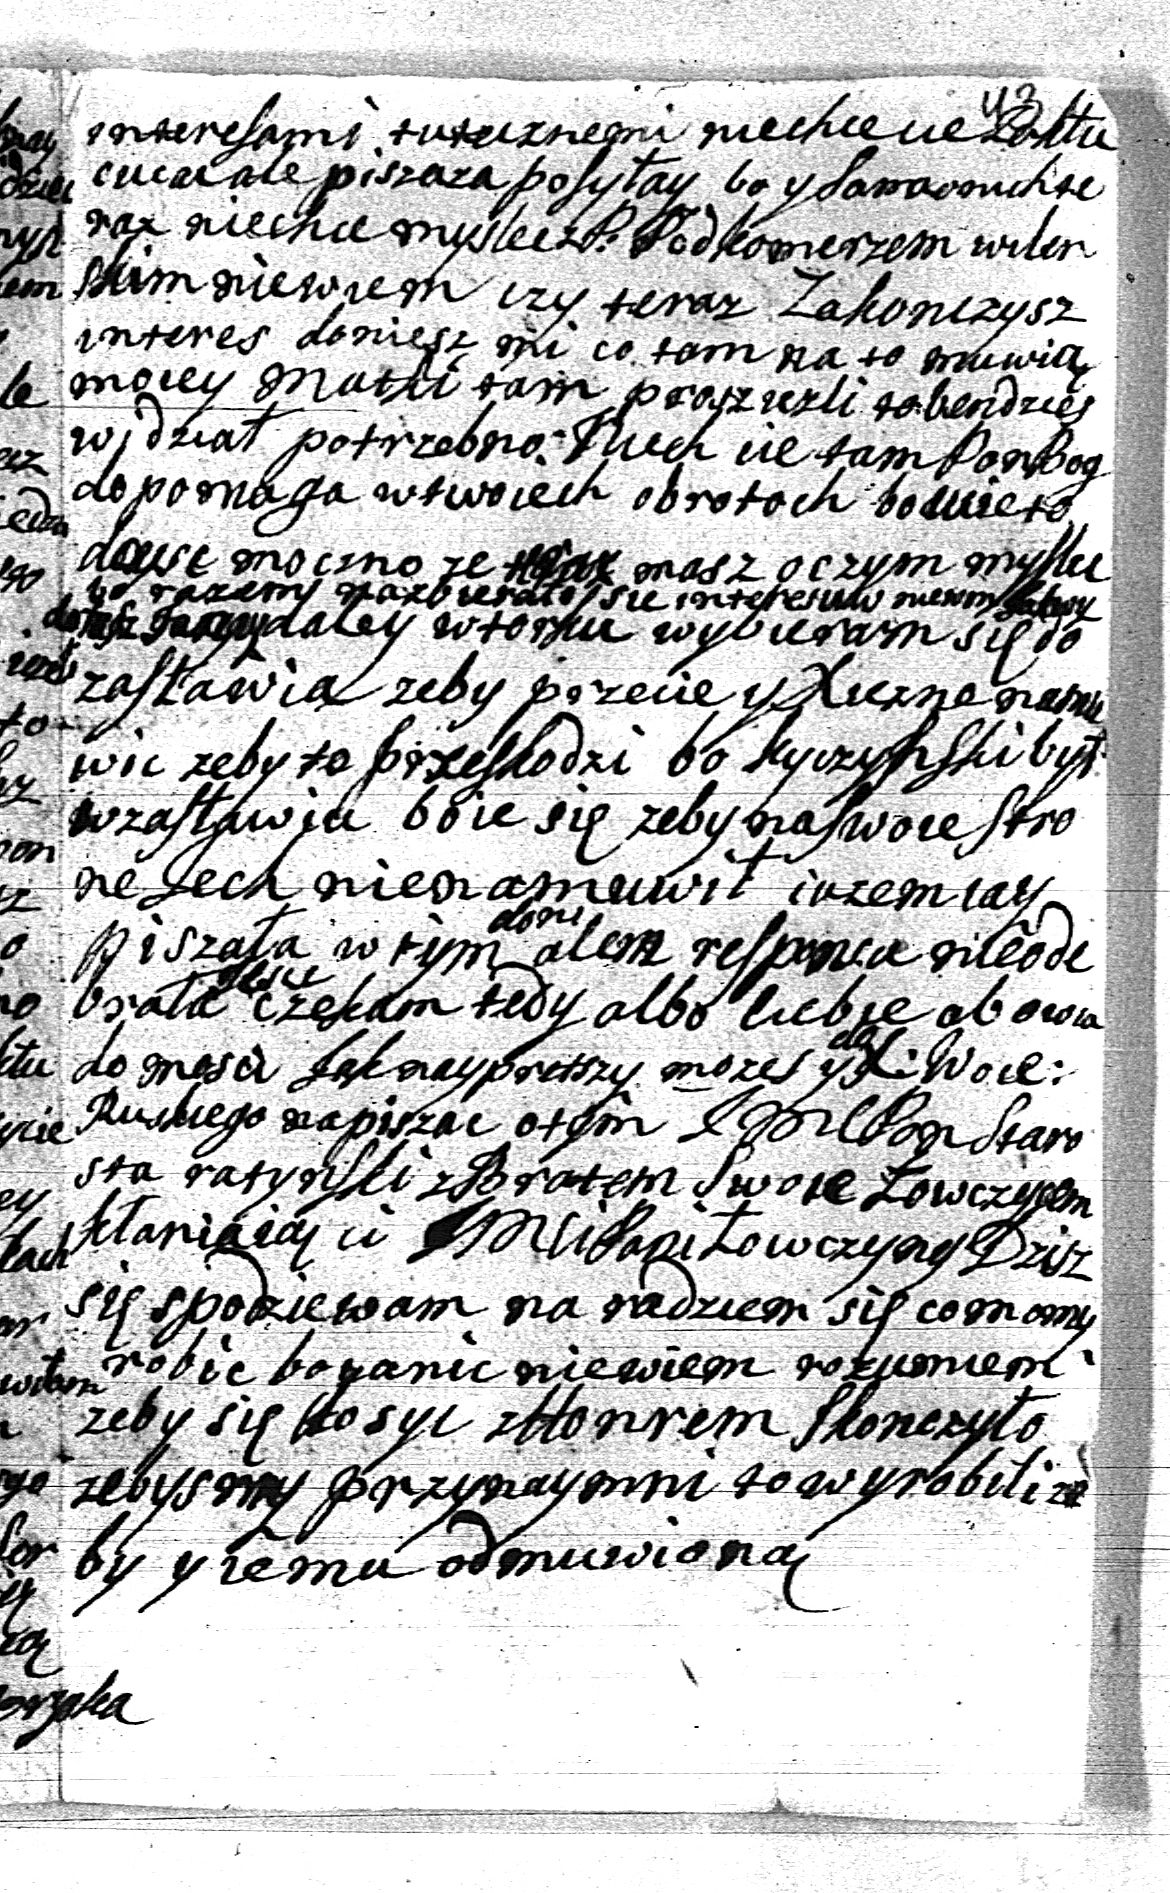 43
interesami tutecznemi niechce cie
cucac ale piszaca posyłay bo y sama o nich te
raz niechce myslec z P: Podkomerzem wilen
skim niewiem czy teraz Zakonczysz
interes doniesz mi co tam na to muwią
moiey Matki tam prosz iezli to bendzies
wjdział potrzebno: Niech cie tam Pan Bog
dopomaga w twoiech obrotach bo wie to
dosyc moczno ze teraz masz oczym myslec
bo razemy nazbierało sie interesuw niewiem
daley wtorku wybieram się do
zasławia zeby przecie y Xiezne namu
wic zeby to przeskodzi bo kyczynski był
w zasławiu boie się zeby na swoie stro
ne Lech nienamuwił iuzem iay
piszała w tym doni alem responcu nieode
brała iesce czekam tedy albo ciebie abo wia
domosci iak nayprętszy mozes y do X: Woie:
Ruskiego napiszac otym IMC Pan Staro
sta ratynski z Bratem Swoie Łowczycem
kłaniaią ci IMCi Pani Łowczyny Dzisz
się spodziewam na radziem się co momy
robic bo zanic niewiem rozumiem
zeby się dosyc z Honrem skonczyło
zebysmy przynaymni to wyrobili ze
by y iemu odmuwioną